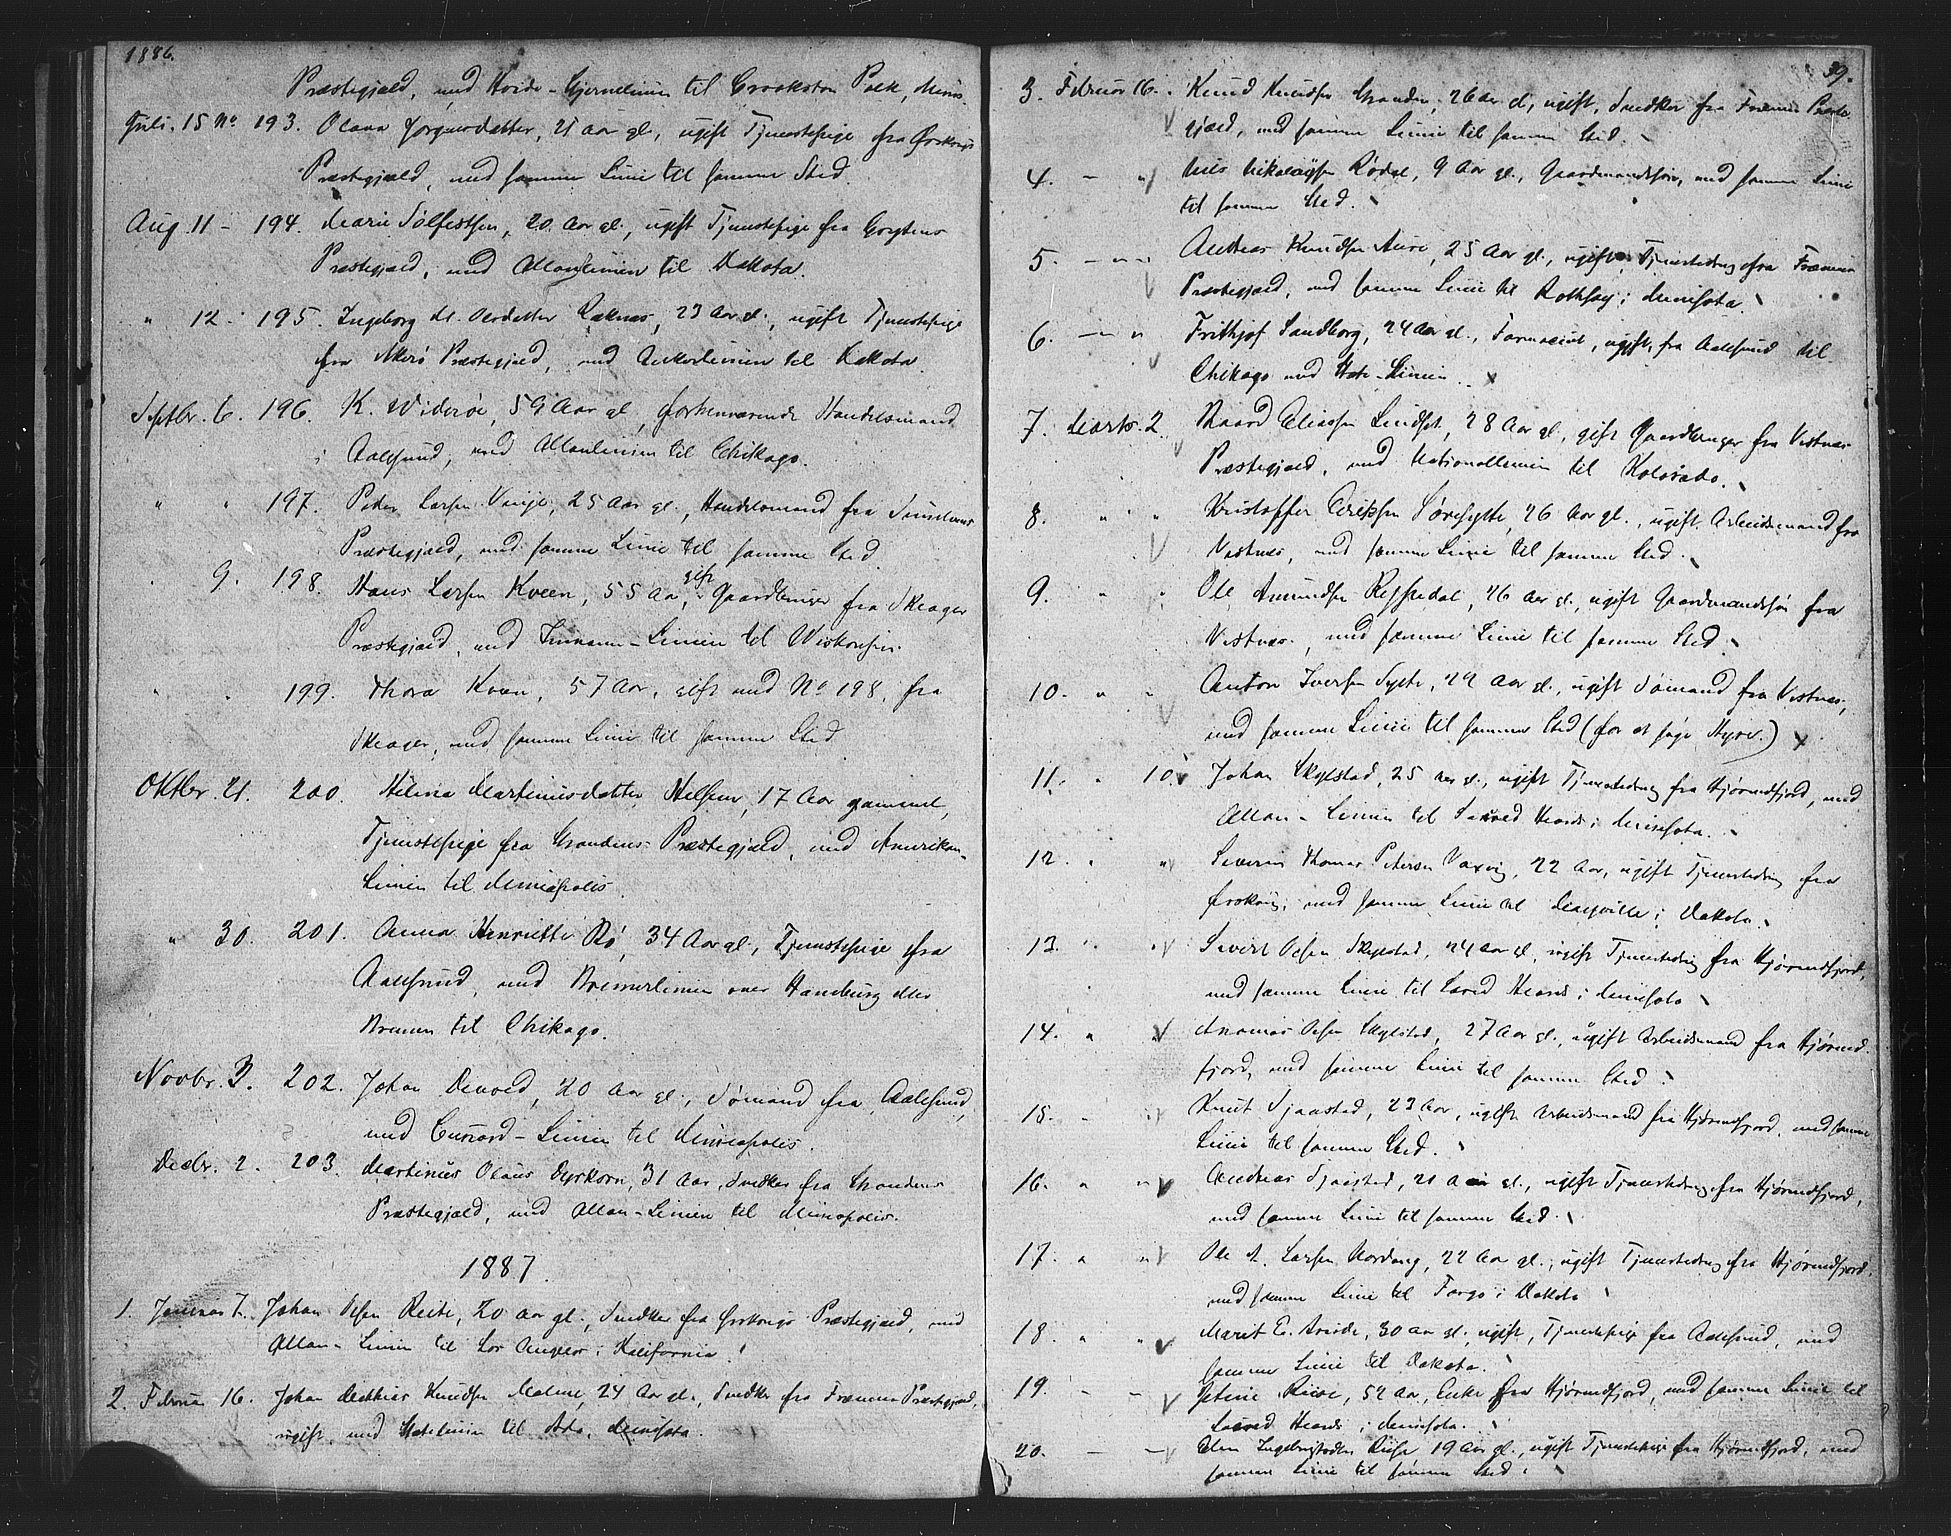 1886.
Præstegjæld, med Hvide-Stjernelinien til Crookston Polk, Minis.
Juli. 15 No 193. Olava Jørgensdatter, 21 Aar gl., ugift Tjenestepige fra Ørskougs
Præstegjæld, med samme Linie til samme Sted.
Aug. 11 - 194. Marie Sølfestsen, 20 Aar gl., ugift Tjenestepige fra Grytens
Præstegjæld, med Allanlinien til Dakota.
" 12. 195. Ingeborg M. Olsdatter Raknæs, 23 Aar gl., ugift Tjenestepige
fra Akerø Præstegjæld, med Ankerlinien til Dakota.
Septbr. 6. 196. K. Widerøe, 59 Aar gl., forhenværende Handelsmand
i Aalesund, med Allanlinien til Chikago.
" " 197. Peder Larsen Vinje, 25 Aar gl., Handelsmand fra
Præstegjæld, med samme Linie til samme Sted.
" 9. 198. Hans Larsen Kveen, 55 Aar, gift Gaardbruger fra Skeager
Præstegjæld, med Inmann-Linien til Wiskonsin.
" " 199. Thora Kveen, 57 Aar, gift med No 198, fra
Skeager, med samme Linie til samme Sted.
Oktbr. 21. 200. Helena Martinusdatter Helsem, 17 Aar gammel,
Tjenestepige fra Strandens Præstegjæld, med Amerikan-
Linien til Miniapolis.
" 30. 201. Anna Henriette Rø, 34 Aar gl., Tjenestepige fra
Aalesund, med Bremerlinien over Hamburg eller
Bremen til Chikago.
Novbr. 3. 202. Johan Devold, 20 Aar gl., Sømand fra Aalesund,
med Cunard-Linien til Miniapolis.
Decbr. 2. 203. Martinus Olaus Dyrkorn, 31 Aar, Snedker fra Strandens
Præstegjæld, med Allan-Linien til Miniapolis.
1887.
1. Januar 7. Johan Olsen Reite, 20 Aar gl., Snedker fra Ørskougs Præstegjæld, med
Allan-Linien til Los Angelos i Kalifornia.
2. Februar 16. Johan Mathias Knudsen Malme, 24 Aar gl., Snedker fra Frænna Præstegjæld,
ugift, med Statelinien til Ada, Minisota.
39.
3. Februar 16. Knud Knudsen Stranden, 26 Aar gl., ugift, Snedker fra Frænna Præste-
gjæld, med samme Linie til samme Sted.
4. - " Nils Nikolaysen Rødal, 9 Aar gl., Gaardmandssøn, med samme Linie
til samme Sted.
5. - " - " Andreas Knudsen Aure, 25 Aar gl., ugift, Tjenestedreng fra Frænna
Præstegjæld, med samme Linie til Rothsay i Minisota.
6. - " - " Frithjof Sandborg, 24 Aar gl., Farmaceut, ugift, fra Aalesund til
Chikago med State-Linien.
7. Marts. 2. Baard Eliassen Lindset, 28 Aar gl., gift Gaardbruger fra Vestnæs
Præstegjæld, med Nationallinien til Kolorado.
8. " " Kristoffer Eriksen Sørsylte, 26 Aar gl., ugift, Arbeidsmand fra
Vestnæs, med samme Linie til samme Sted.
9. " " Ole Amundsen Rypdal, 26 Aar gl., ugift Gaardmandssøn fra
Vestnæs, med samme Linie til samme Sted.
10. " " Anton Iversen Sylte, 24 Aar gl., ugift Sømand fra Vestnæs,
med samme Linie til samme Sted (for at søge Hyre.)
11. " 10. Johan Skylstad, 25 Aar gl., ugift Tjenestedreng fra Hjørundfjord, med
Allan-Linien til Sacred Heards i Minisota.
12. " " Severin Thomas Petersen Vaxvig, 22 Aar, ugift Tjenestedreng fra
Ørskoug, med samme Linie til Mayville i Dakota.
13. " " Sivert Olsen Skylstad, 24 Aar gl., ugift Tjenestedreng fra Hjørundfjord,
med samme Linie til Sacred Heards i Minisota
14. " " Olsen Skylstad, 27 Aar gl., ugift Arbeidsmand fra Hjørund-
fjord, med samme Linie til samme Sted.
15. - " Knut Tjaastad, 23 Aar, ugift Arbeidsmand fra Hjørundfjord, med samme
Linie til samme Sted.
16. " " Andreas Tjaastad, 21 Aar gl., ugift Tjenestedreng fra Hjørundfjord,
med samme Linie til samme Sted.
17. " " Ole A. Larsen Nordang, 22 Aar gl., ugift Tjenestedreng fra Hjørundfjord,
med samme Linie til Fargo i Dakota
18. " " Marit E. 30 Aar gl., ugift, Tjenestepige fra Aalesund, med
samme Linie til Dakota.
19. - - Riise, 52 Aar, Enke fra Hjørundfjord, med samme Linie til
Sacred Heards i Minisota.
20. - - Riise 19 Aar gl., ugift Tjenestepige fra Hjørundfjord, med
samme Linie til samme Sted.